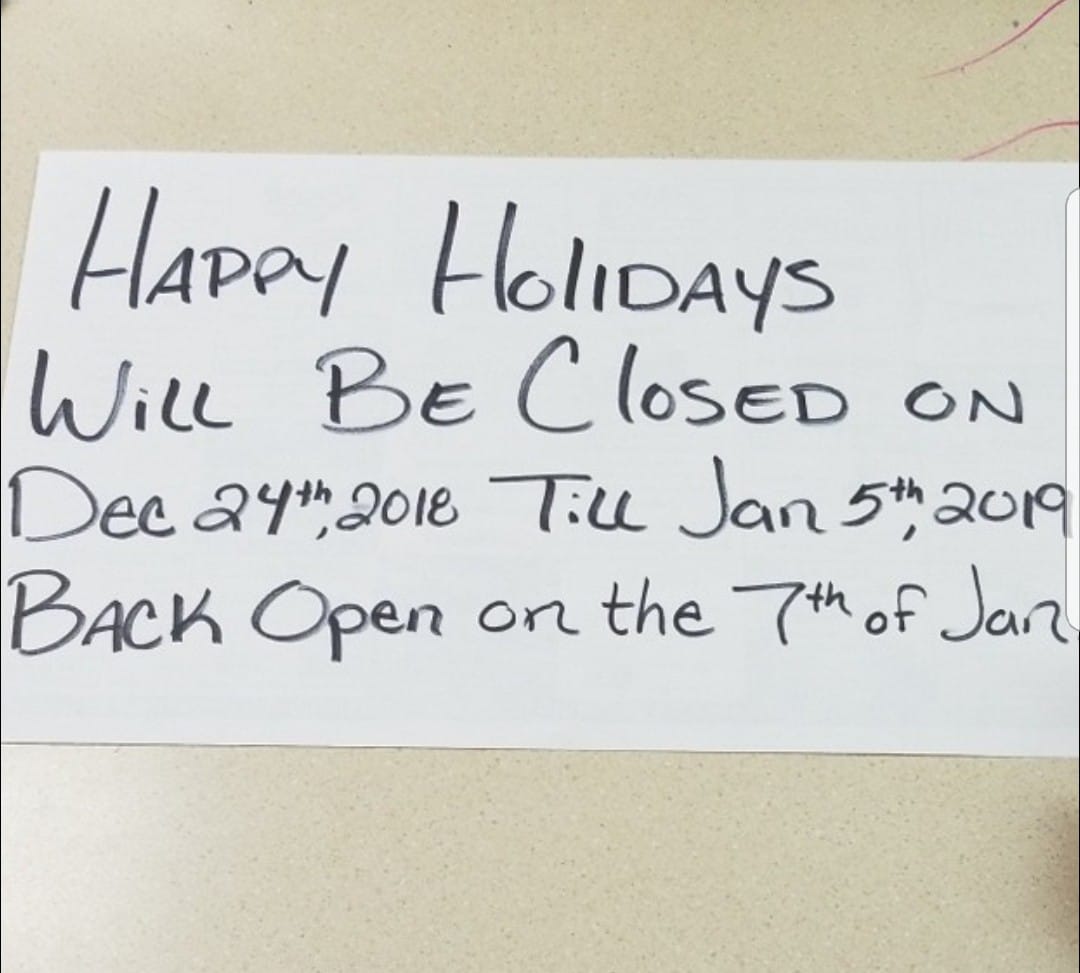 HAPPY HOLIDAYS
WILL BE CLOSED ON
Dec 24th, 2018 Till Jan 5th, 2019
BACK Open on the 7th of Jan.